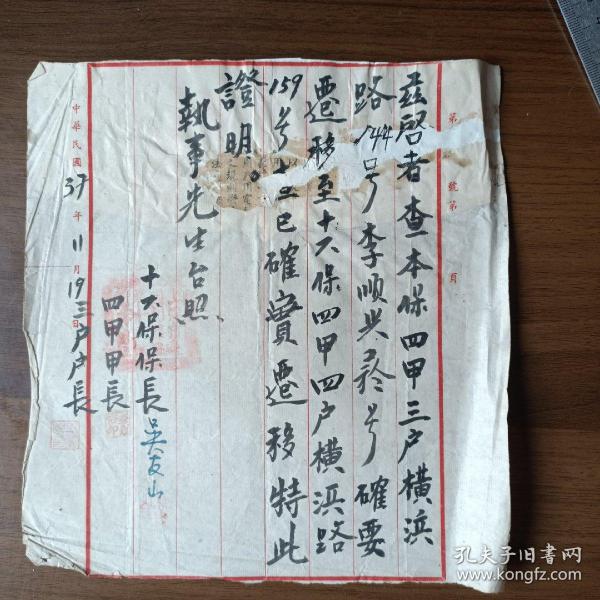 第 號 第 頁
茲啓者查本保四甲三户橫浜
路144号李順興於号確要
遷移至十六保四甲四户橫浜路
159号 已確實遷移特此
證明。
執事先生台照
十六保保長吳友山
四甲甲長
三户户長
中華民國37年11月19日
孔夫子旧书网
www.kongfz.com